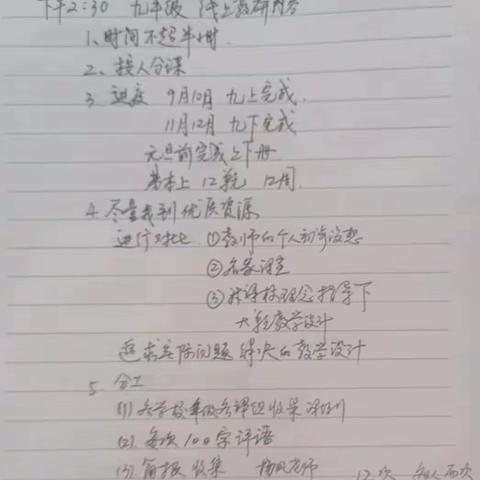 下午2:30 九年级 线上教研内容
1、时间不超半小时.
2、按人分课
3 进度 9月10月 九上完成.
11月12月 九下完成
元旦前完成上下册
基本上 12单元 12周
4. 尽量找到优质资源
进行对比 ①教师的个人初步设想
②名家课堂
③新课标理念指导下
大单元教学设计
追求实际问题解决的教学设计
5. 分工
(1) 各学校年级各课组收集课例
(2). 每次100字评语
(3). 简报收集 老师 12次 每人两次